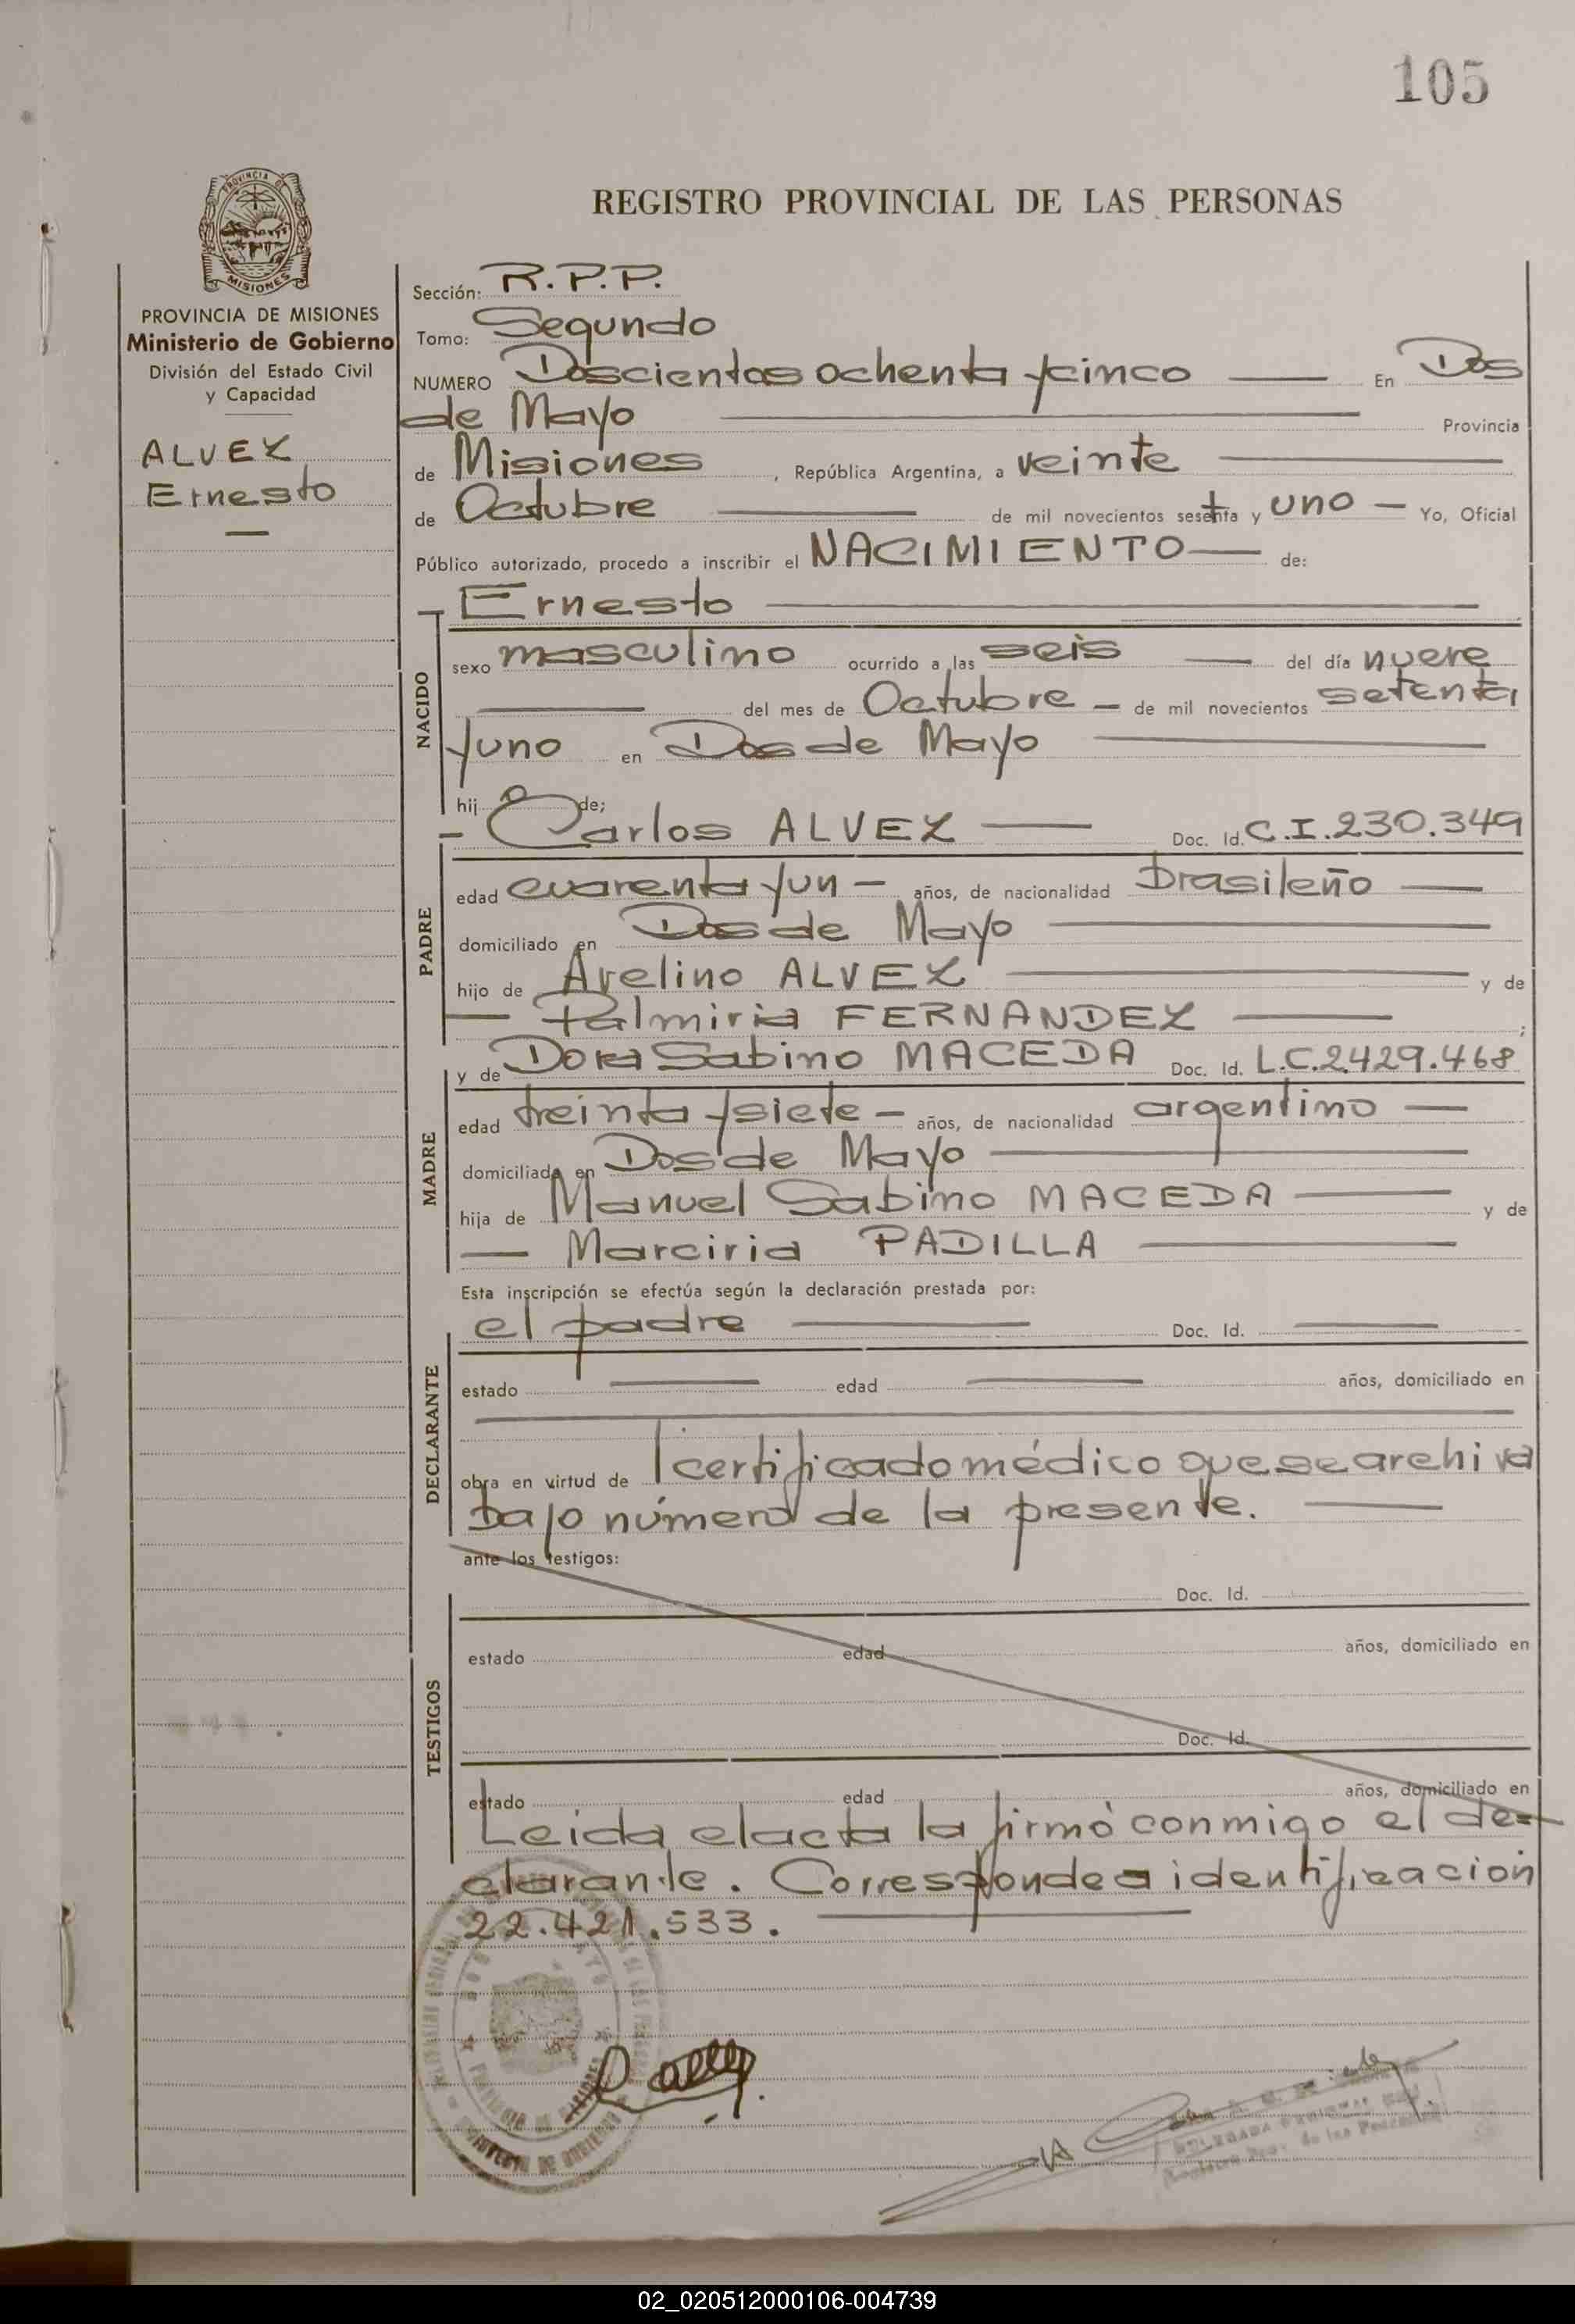 105
REGISTRO PROVINCIAL DE LAS PERSONAS
PROVINCIA DE
MISIONES
PROVINCIA DE MISIONES
Ministerio de Gobierno
División del Estado Civil
y Capacidad
ALVEZ
Ernesto
Sección: R.P.P.
Tomo: Segundo
NUMERO Doscientos ochenta y cinco En Dos
de Mayo Provincia
de Misiones, República Argentina, a veinte
de Octubre de mil novecientos sesenta y uno Yo, Oficial
Público autorizado, procedo a inscribir el NACIMIENTO de:
Ernesto
NACIDO
sexo masculino ocurrido a las seis del día nueve
del mes de Octubre de mil novecientos setenta
y uno en Dos de Mayo
hijo de;
Carlos ALVEZ Doc. Id. C.I.230.349
PADRE
edad cuarenta y un años, de nacionalidad brasileño
domiciliado en Dos de Mayo
hijo de Avelino ALVEZ y de
Palmiria FERNANDEZ ;
y de Dora Sabino MACEDA Doc. Id. L.C.2.429.468
MADRE
edad treinta y siete años, de nacionalidad argentino
domiciliada en Dos de Mayo
hija de Manuel Sabino MACEDA y de
Marciria PADILLA
Esta inscripción se efectúa según la declaración prestada por:
el padre Doc. Id.
DECLARANTE
estado edad años, domiciliado en
obra en virtud de certificado médico que se archiva
bajo número de la presente.
ante los testigos:
Doc. Id.
TESTIGOS
estado edad años, domiciliado en
Doc. Id.
estado edad años, domiciliado en
Leida el acta la firmó conmigo el de=
clarante. Corresponde a identificación
22.421.533.
02_020512000106-004739